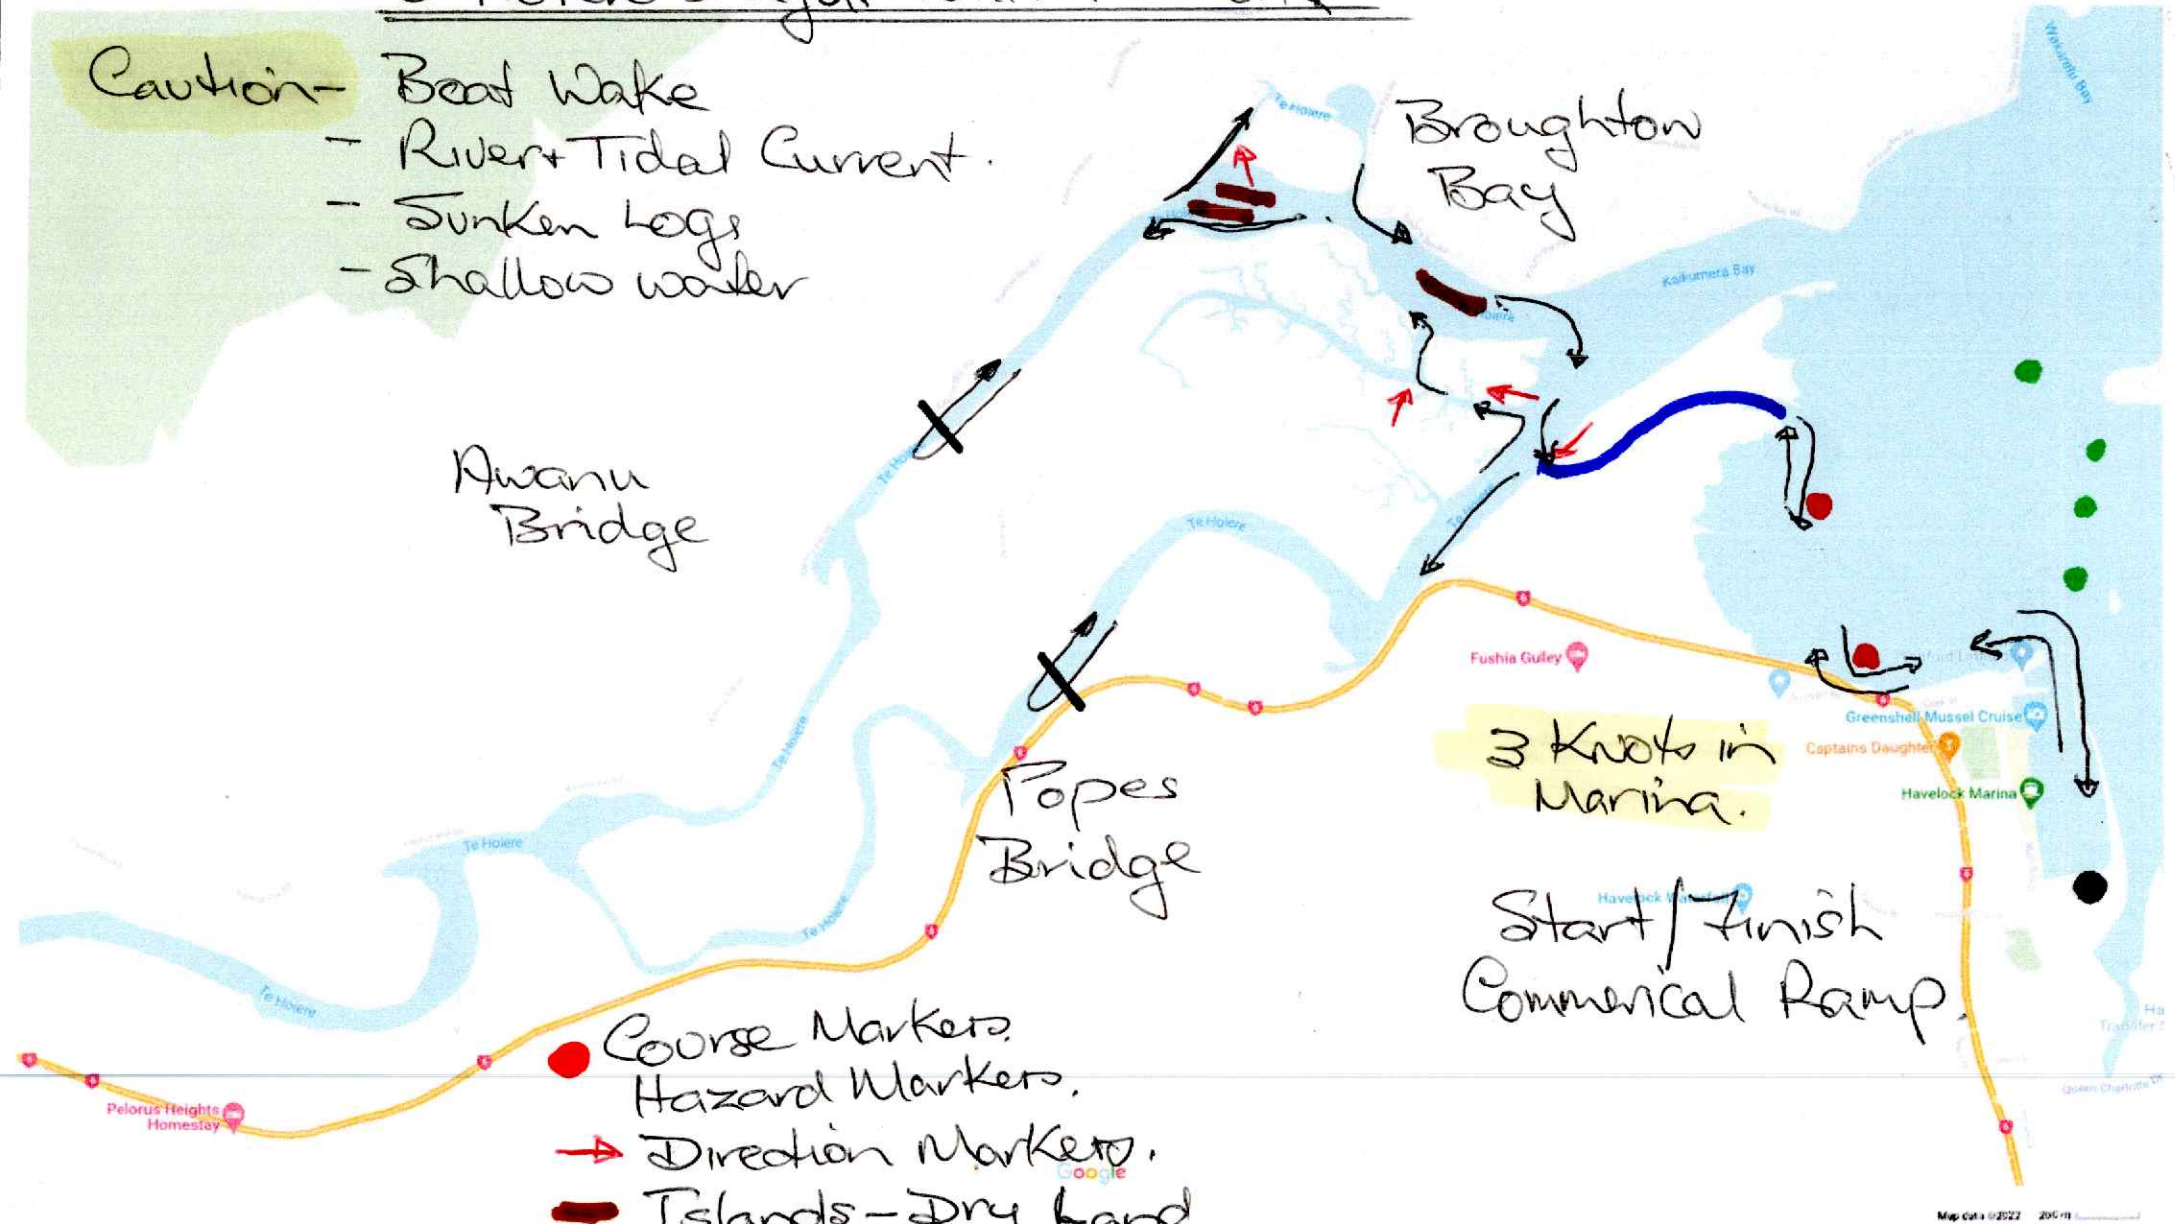 Caution- Boat Wake
- River + Tidal Current.
- Sunken Logs
- Shallow water
Te Hoiere
Broughton
Bay
Wakaretu Bay
Kaikumera Bay
Awanu
Bridge
Te Hoiere
Fushia Gulley
Greenshell Mussel Cruise
Captains Daughter
3 Knots in
Marina.
Havelock Marina
Popes
Bridge
Te Hoiere
Te Hoiere
Te Hoiere
Start/Finish
Commerical Ramp.
Te Hoiere
6
Pelorus Heights
Homestay
Course Markers.
Hazard Markers.
Direction Markers.
Google
Islands-Dry Land
Map data ©2022 200 m